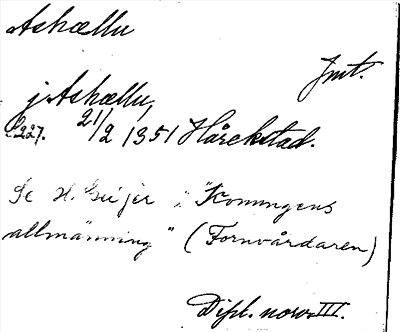 Ashællu
Jmt.
j Ashællu,
s. 227. 21/2 1351 Hårekstad.
Se H. Geijer i "Konungens
allmänning" (Fornvårdaren)
Dipl. norv. III.